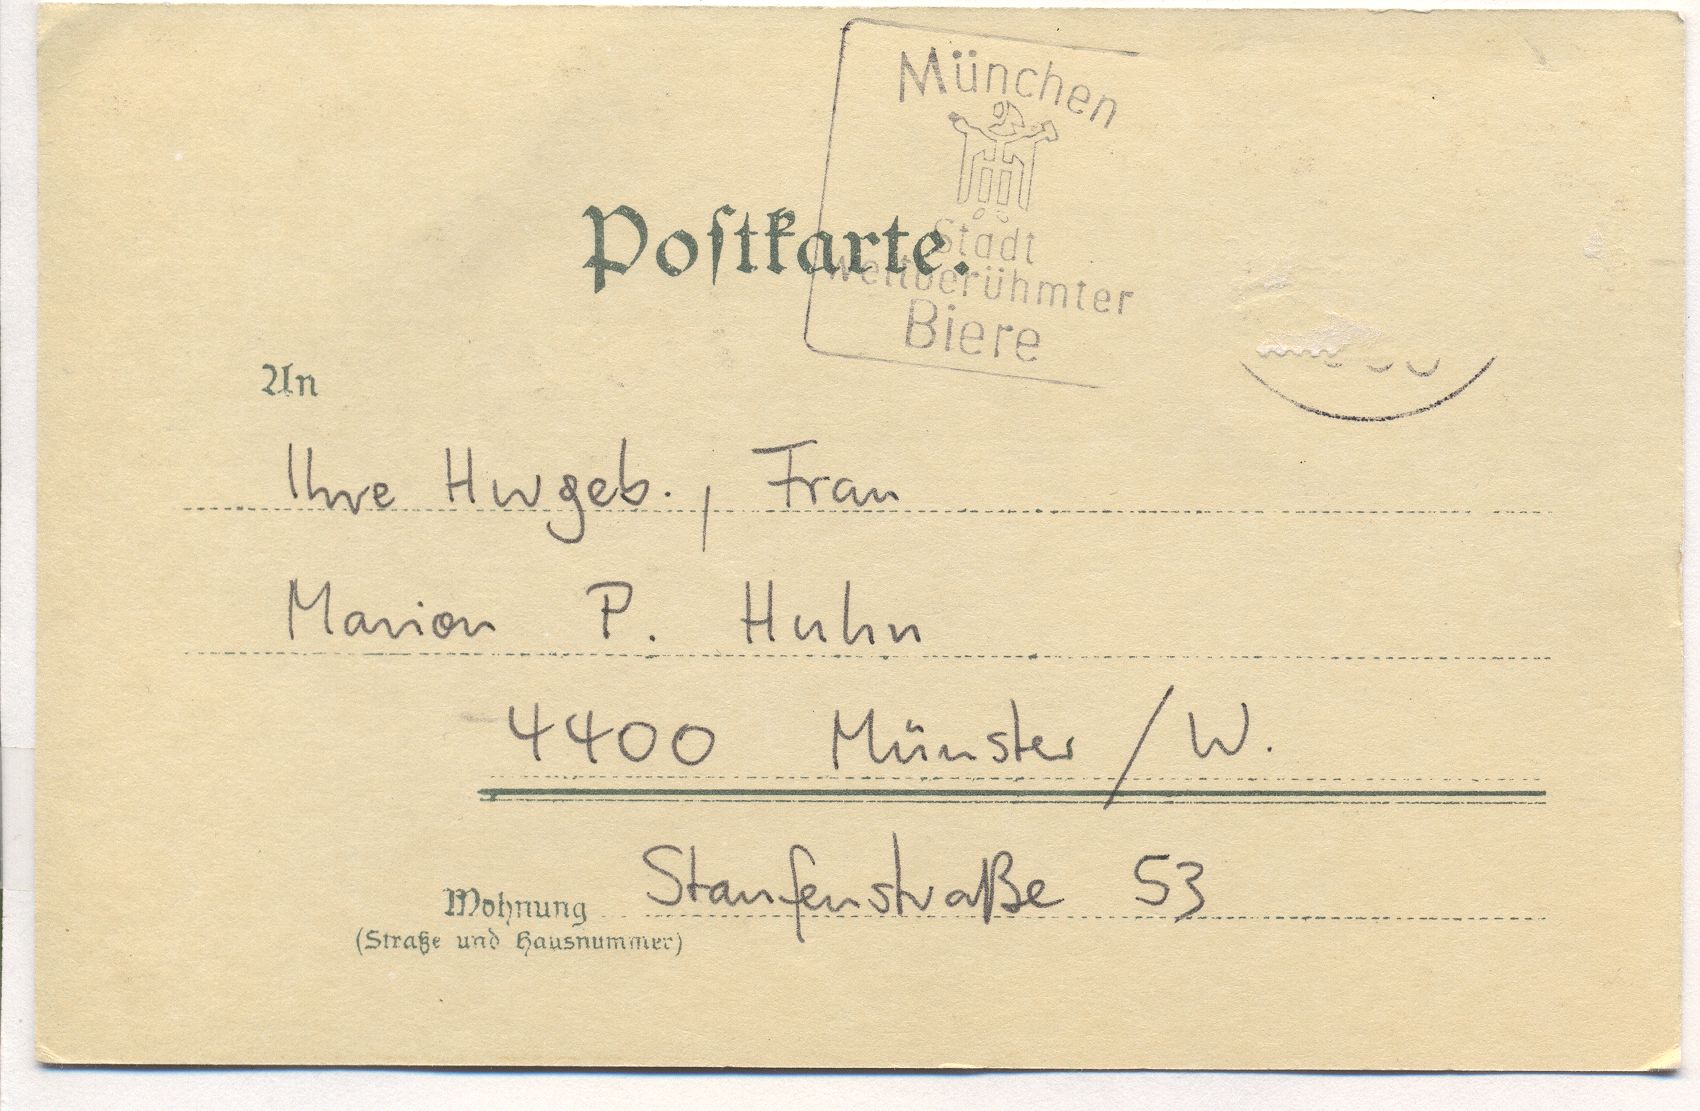 München
Stadt
weltberühmter
Biere
Postkarte.
An
Ihre Hwgeb., Frau
Marion P. Huhn
4400 Münster / W.
Staufenstraße 53
Wohnung
(Straße und Hausnummer)